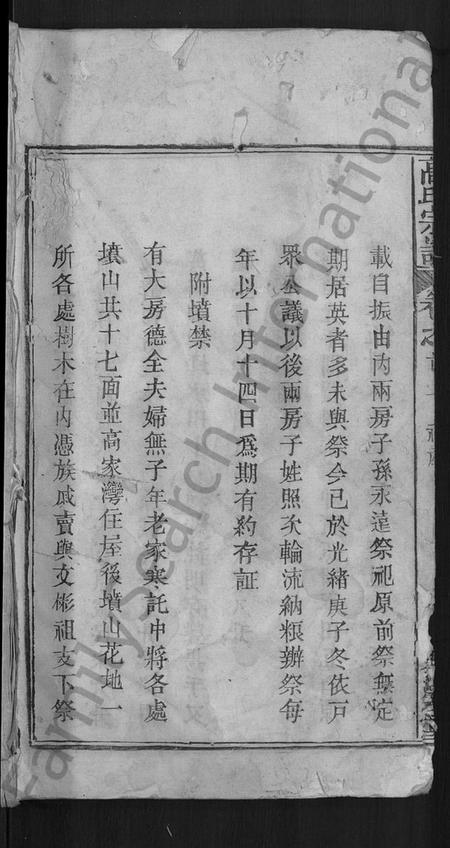 高氏宗譜 卷之首
載自振由內兩房子孫永遠祭祀原前祭無定
期居英者多未與祭今已於光緒庚子冬依戸
眾公議以後兩房子姓照次輪流納粮辦祭每
年以十月十四日爲期有約存証
附墳禁
有大房德全夫婦無子年老家寒託中將各處
墳山共十七面並高家灣住屋後墳山花地一
所各處樹木在內憑族戚賣與文彬祖支下祭
FamilySearch International